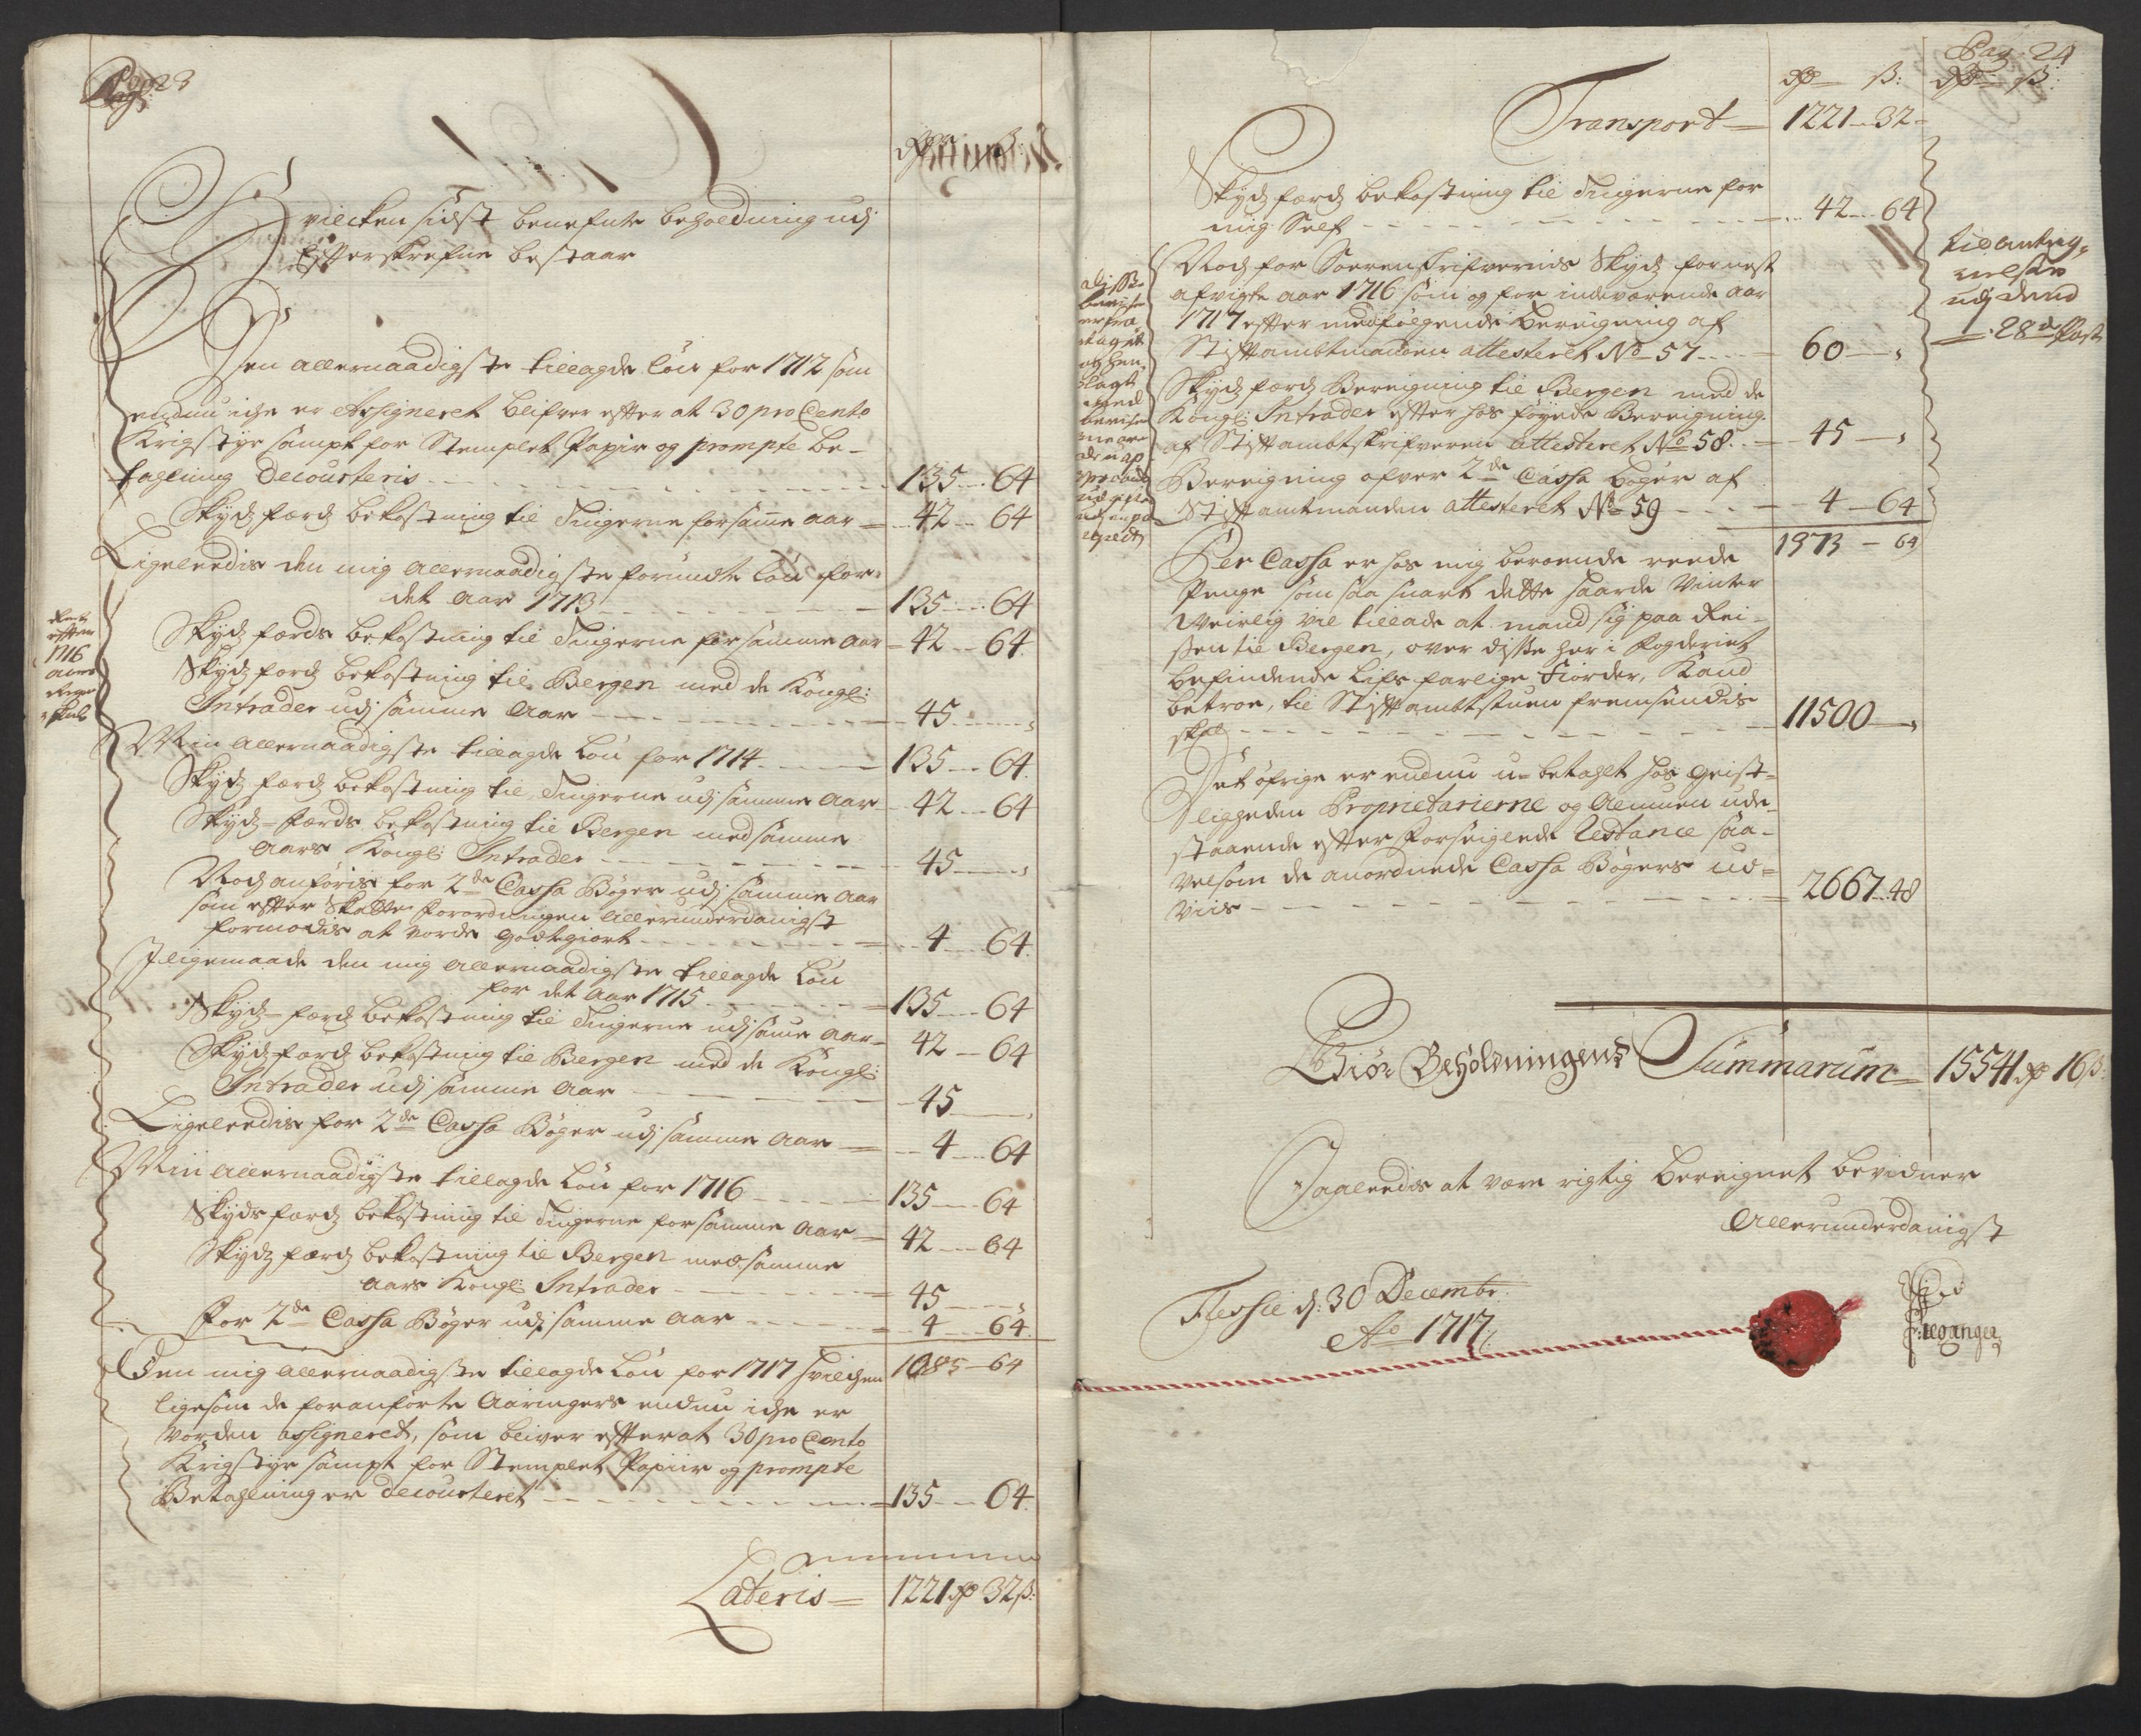 Pag: 23
rdr ß:
Hvilcken sidst benefnte beholdning udj
Efterskrefne bestaar
Den allernaadigste tillagde løn for 1712 som
endnu iche er Assigneret blifver efter at 30 pro Cento
Krigstyr sampt for Stemplet Papir og prompte be-
tahlning Decourteris 135 64
Skydsferds bekostning til Tingerne for samme aar 42 64
Ligeleedis den mig allernaadigste forundte løn for
det aar 1713 135 64
Skyds færds bekostning til Tingerne for samme aar 42 64
Skyds færds bekostning til Bergen med de Kongl:
Intrader udj samme Aar 45
Min allernaadigste tillagde Løn for 1714 135 64
Skyds færds bekostning til Tingerne udj samme Aar 42 64
Skyds-færds bekostning til Bergen med samme
Aars Kongl: Intrader 45
Noch anføris for 2de Cassa Bøger udj samme Aar
som efter Skatte forordningen allerunderdanigst
formodis at vorde godtgiort 4 64
I ligemaade den mig allernaadigste tillagde Løn
for det Aar 1715 135 64
Skyds-færds bekostning til Tingerne udj samme Aar 42 64
Skydsfærds bekostning til Bergen med de Kongl:
Intrader udj samme Aar 45
Ligeleedis for 2de Cassa Bøger udj samme Aar 4 64
Min allernaadigste tillagde Løn for 1716 135 64
Skyds færds bekostning til Tingerne for samme Aar 42 64
Skyds færds bekostning til Bergen med samme
Aars Kongl: Intrader 45
For 2de Cassa Bøger udj samme Aar 4 64
1085 64
Den mig allernaadigste tillagde Løn for 1717 hvilchen
ligesom de foranførte Aaringers endnu iche er
vorden assigneret, som bliver efter at 30 pro Cento
Krigstyr sampt for Stemplet Papiir og prompte
Betahlning er decourteret 135 64
Lateris 1221 rdr 32 ß:
efter
1716
aars
Regn-
skab
Pag: 24
rdr ß: rdr ß:
Transport 1221 32
Skyds færds bekostning til Tingerne for
mig Self 42 64
Noch for Sorenskrifverens Skyds for nest
afvigte aar 1716 som og for indeværende aar
1717 efter medfølgende Bereigning af
Stiftambtmanden attesteret No 57 60
Skyds færds Bereigning til Bergen med de
Kongl: Intrader efter hos føyede Bereigning
af Stiftambtskrifveren attesteret No 58 45
Bereigning ofver 2de Cassa bøger af
Stiftamtmanden attesteret No 59 4 64
1373 64
til anteg-
nelsen
udj dend
28de Post
disse
beviser
er fra
taget
og hen
lagt
med
Per Cassa er hos mig beroende reede
Penge som saa snart dette haarde Vinter
Veirlig vil tillade at mand sig paa Rei-
sen til Bergen, over disse her i fogderiet
befindende Lifs farlige Fiorder, Kand
betroe, til Stiftambtstuen fremsendis
skal 11500
Det øfrige er endnu u-betahlt hos Geist-
ligheden Proprietarierne og Almuen ude-
staaende efter forseiglede Restance saa-
velsom de anordnede Cassa Bøgers ud-
viis 2667 48
Giør Beholdningens Summarum 15541 rdr 16 ß:
Saaleedis at være rigtig bereignet bevidner
Allerunderdanigst
Fleshie d: 30 Decembr:
Ao 1717
Leganger